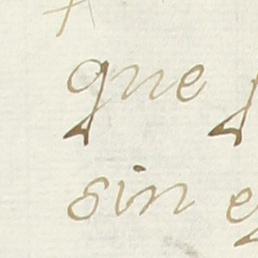 que
sin